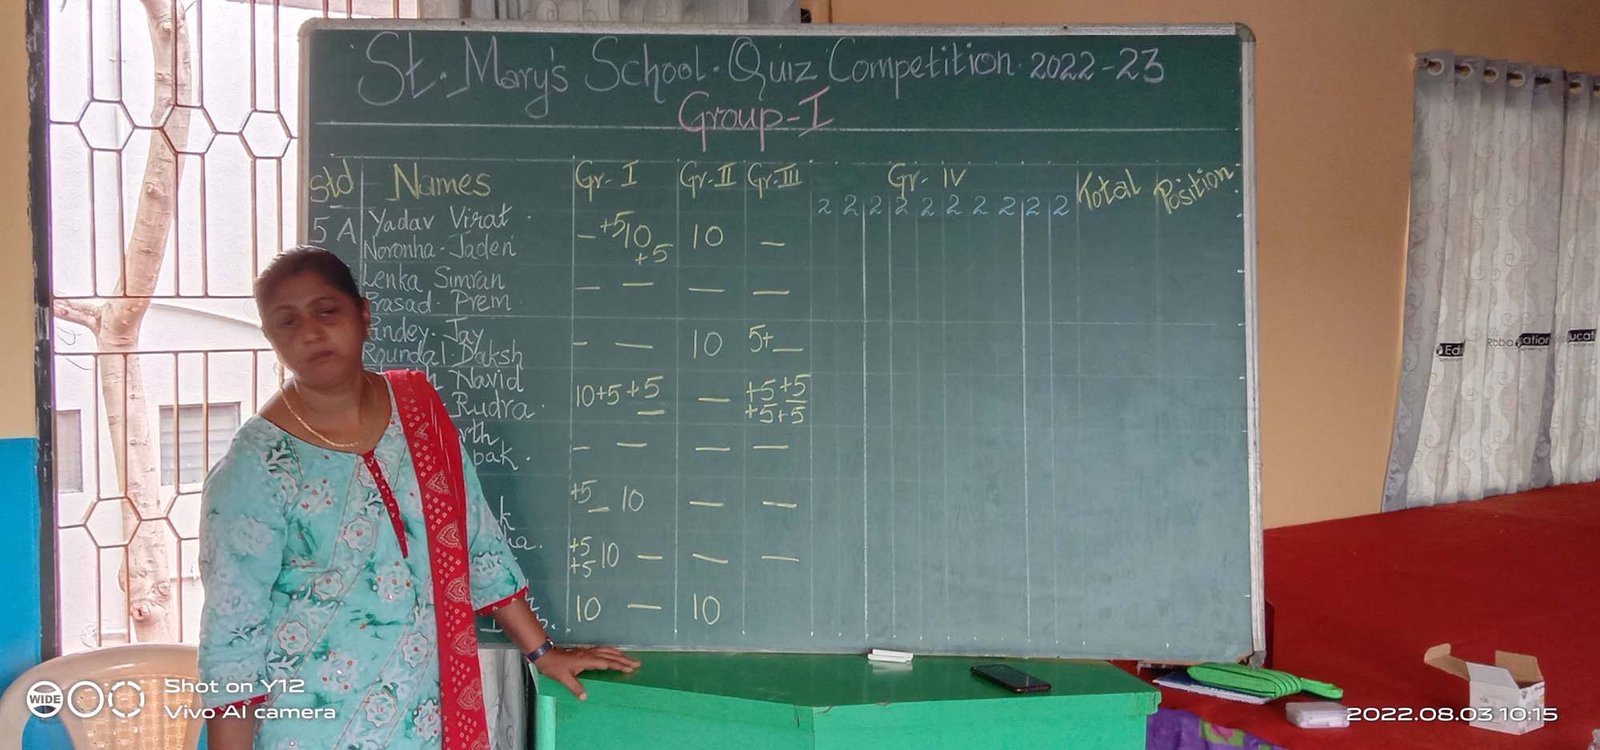 St. Mary's School. Quiz Competition 2022-23
Group-I
Std Names Gr-I Gr.II Gr.III Gr-IV Total Position
2 2 2 2 2 2 2 2 2 2
5 A Yadav Virat - +5 10 +5 10 —
Noronha Jaden
Lenka Simran - — — —
Prasad Prem
Jay - — 10 5+ —
Daksh
Navid 10+5+5 — — +5+5
Rudra. +5+5
- — — —
+5 — 10 — —
+5 10 — — —
+5
10 — 10
Edu
Robo
Shot on Y12
WIDE
Vivo AI camera
2022.08.03 10:15